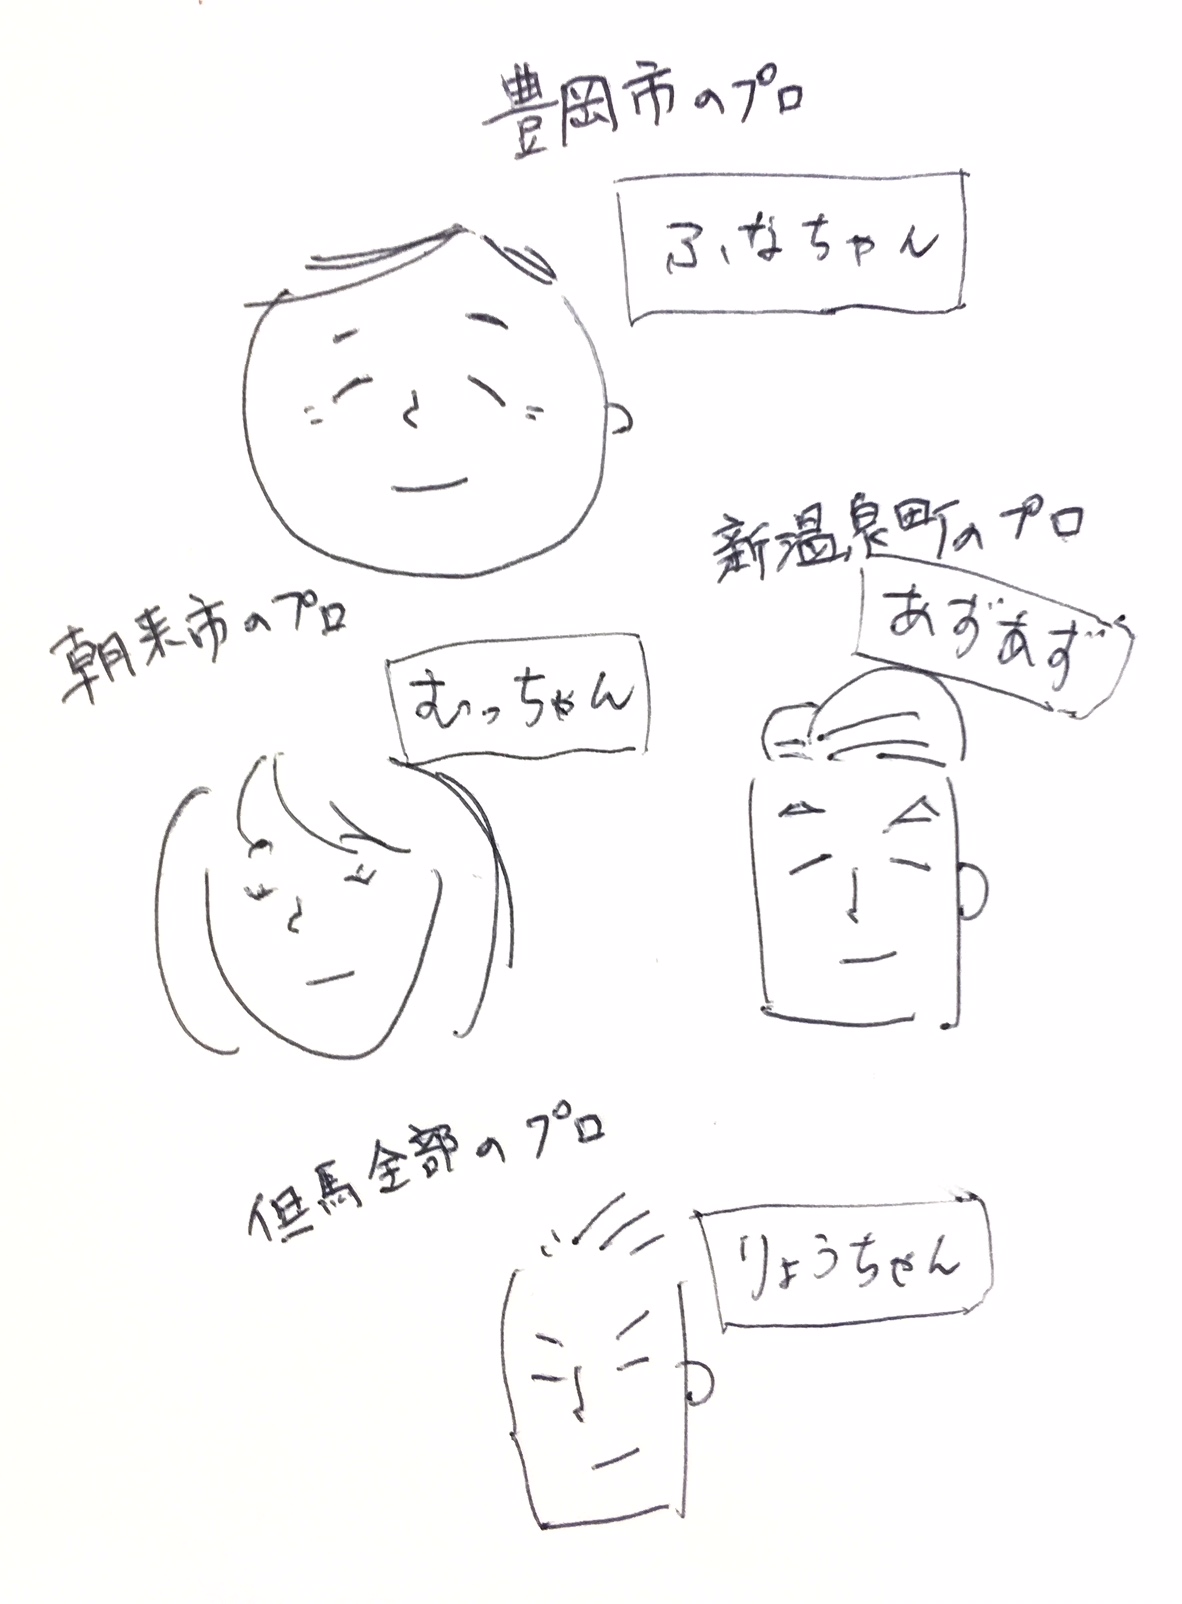 豊岡市のプロ
ふなちゃん
新温泉町のプロ
あずあず
朝来市のプロ
むっちゃん
但馬全部のプロ
りょうちゃん